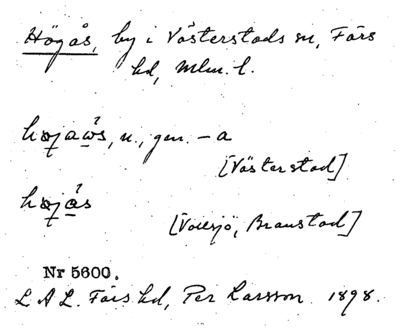 Högås, by i Västerstads sn, Färs
hd, Mlm. l.
højaås, n., gen. -a
[Västerstad]
højås
[Vollsjö, Brandstad]
Nr 5600.
L A L. Färs hd, Per Larsson 1898.